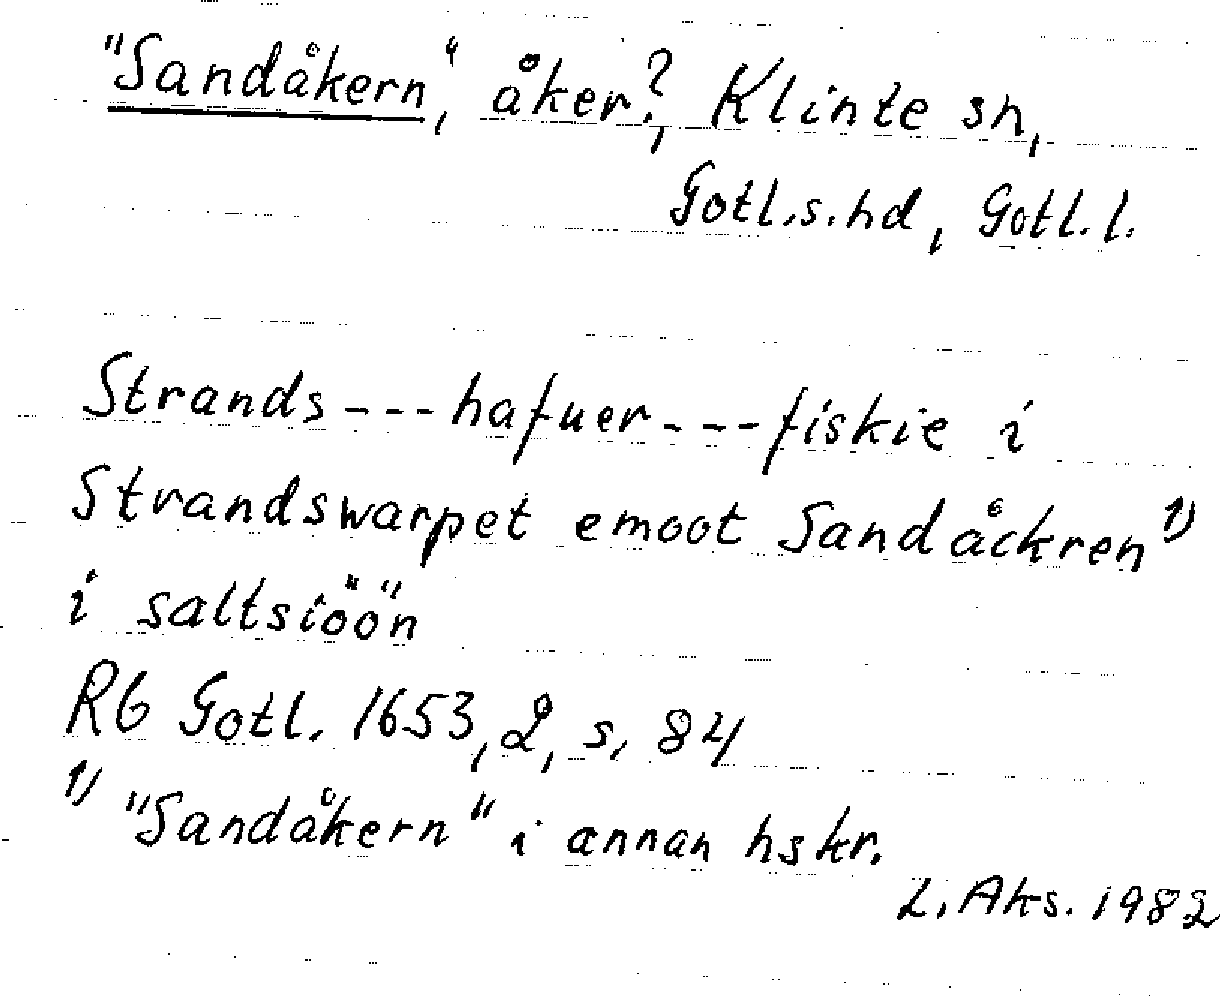 "Sandåkern", åker?, Klinte sn,
Gotl.s.hd, Gotl.l.
Strands---hafuer---fiskie i
Strandswarpet emoot Sandåckren 1)
i saltsiöön
RG Gotl. 1653,2, s. 84
1) "Sandåkern" i annan hskr.
L. Aks. 1982